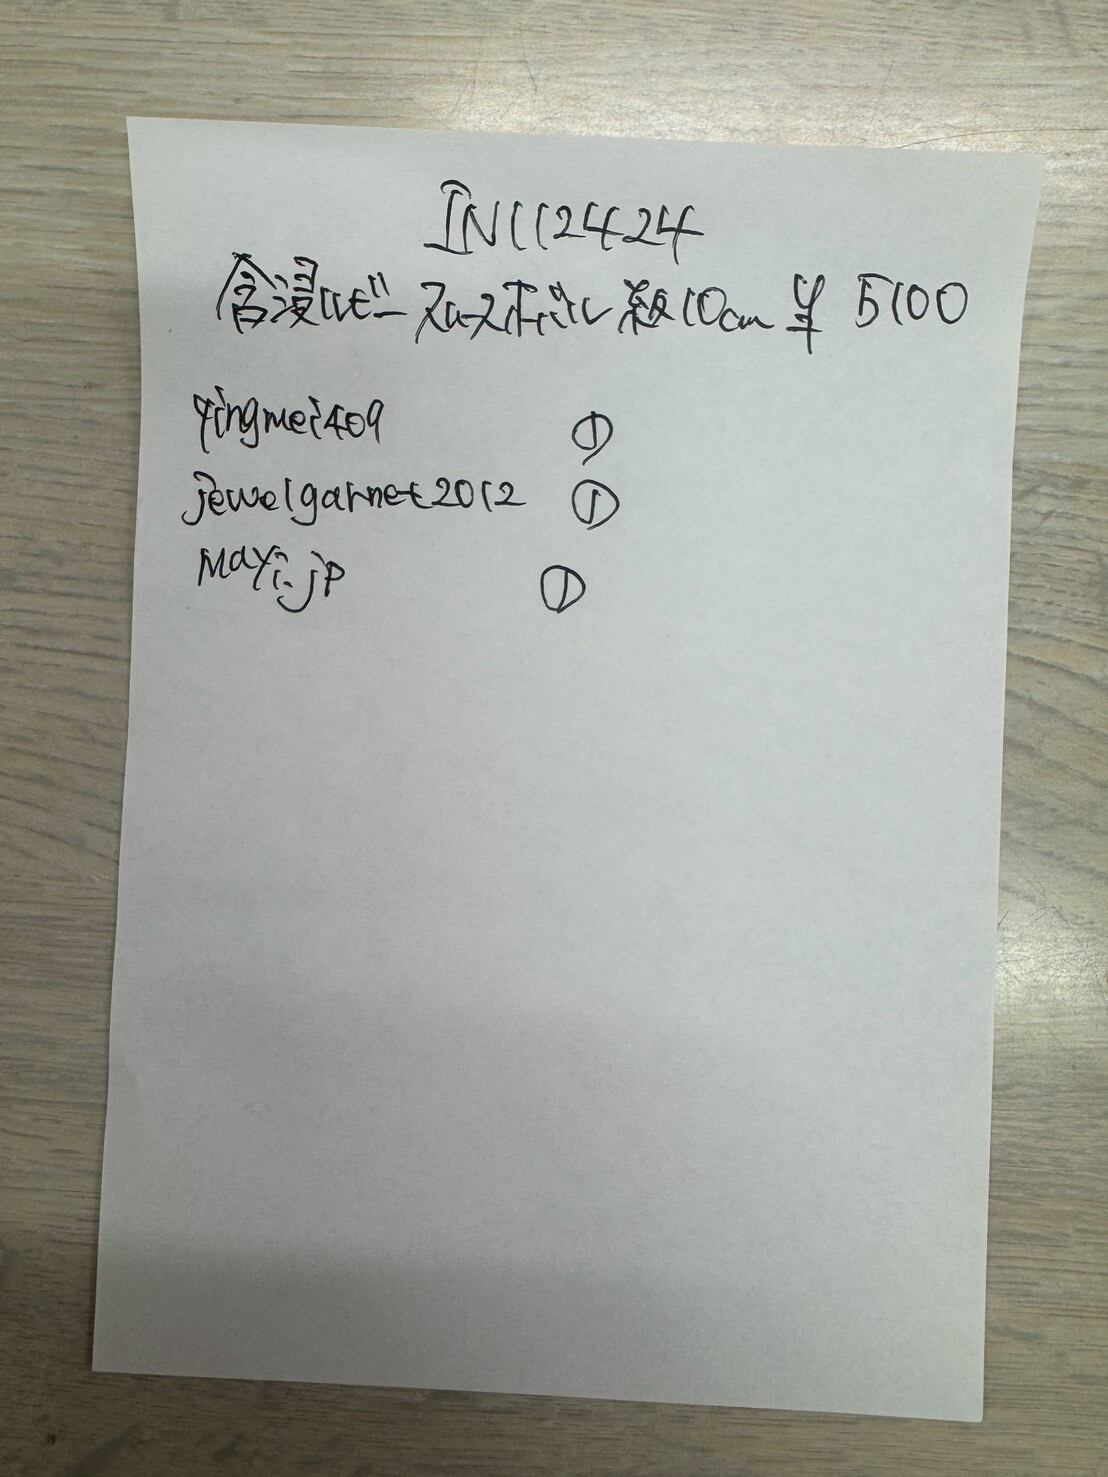 IN112424
含浸ルビースロースボール 級10cm ¥ 5100
yingmei409 ①
jewelgarnet2012 ①
Mayi.jp ①